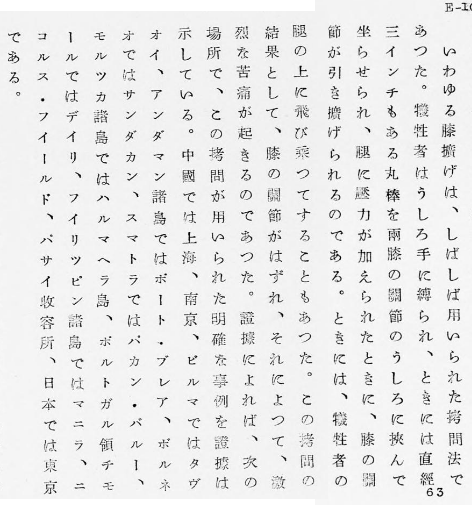 E-10
いわゆる膝擴げは、しばしば用いられた拷問法で
あつた。犠牲者はうしろ手に縛られ、ときには直經
三インチもある丸棒を兩膝の關節のうしろに挾んで
坐らせられ、腿に壓力が加えられたときに、膝の關
節が引き擴げられるのである。ときには、犠牲者の
腿の上に飛び乘つてすることもあつた。この拷問の
結果として、膝の關節がはずれ、それによつて、激
烈な苦痛が起きるのであつた。證據によれば、次の
場所で、この拷問が用いられた明確な事例を證據は
示している。中國では上海、南京、ビルマではタヴ
オイ、アンダマン諸島ではポート・ブレア、ボルネ
オではサンダカン、スマトラではパカン・バルー、
モルツカ諸島ではハルマヘラ島、ポルトガル領チモ
ールではデイリ、フイリツピン諸島ではマニラ、ニ
コルス・フイールド、パサイ收容所、日本では東京
である。
63